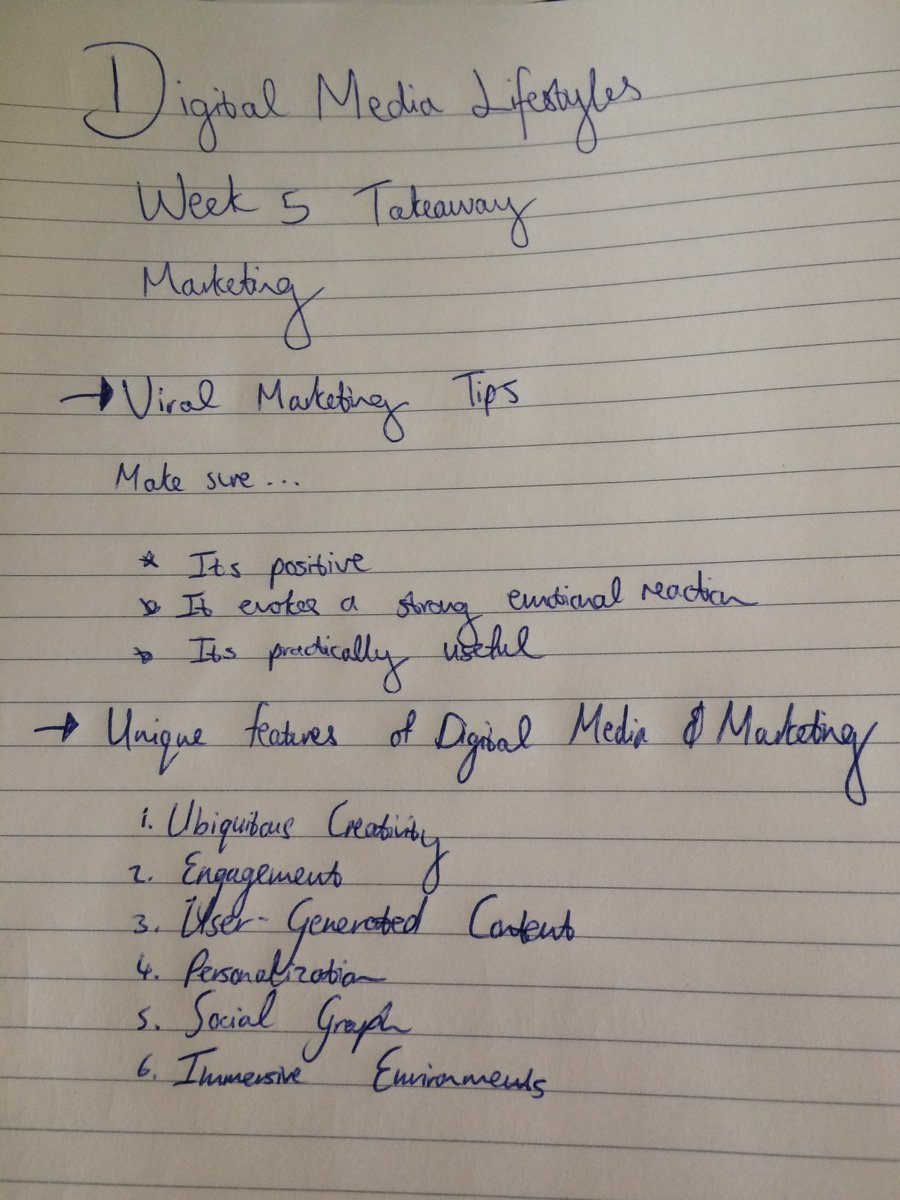 Digital Media Lifestyles
Week 5 Takeaway
Marketing
→ Viral Marketing Tips
Make sure...
* Its positive
* It evokes a strong emotional reaction
* Its practically useful
→ Unique features of Digital Media & Marketing
1. Ubiquitous Creativity
2. Engagement
3. User-Generated Content
4. Personalization
5. Social Graph
6. Immersive Environments